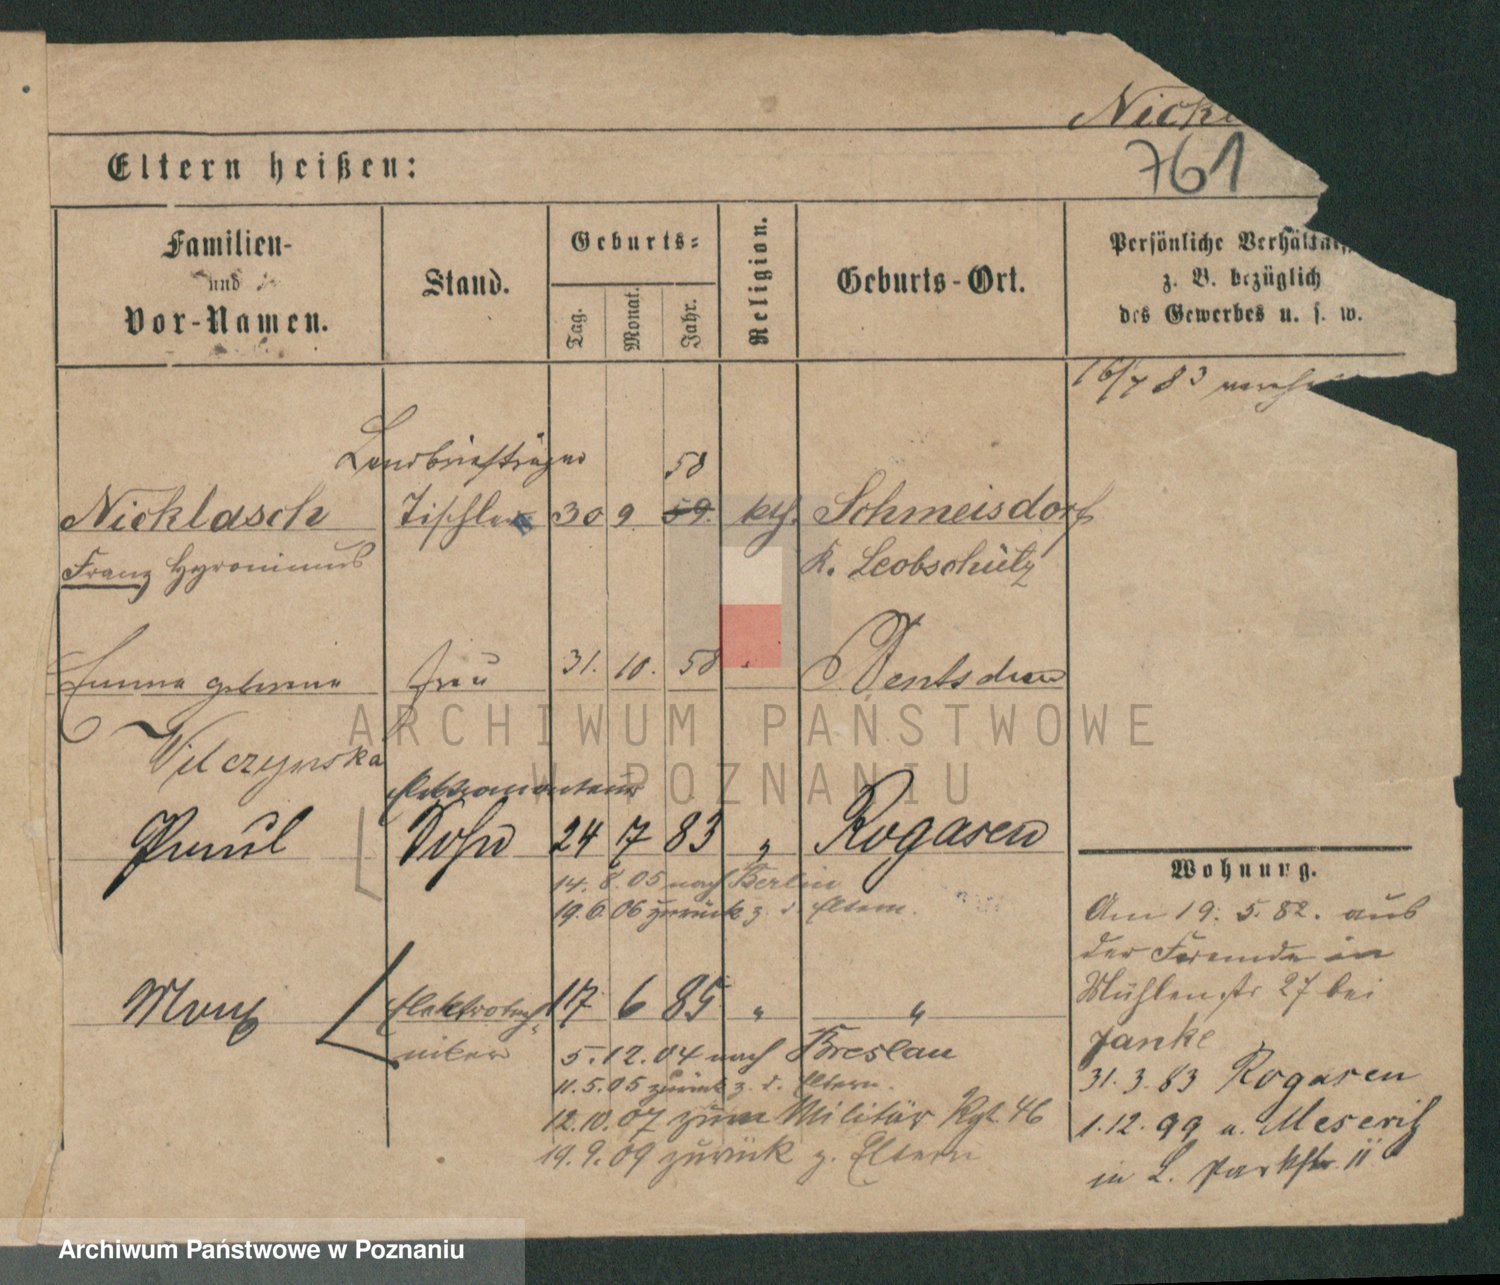 Nickl
761
Eltern heißen:
Familien-
und
Vor-Namen.
Stand.
Geburts-
Tag.
Monat.
Jahr.
Religion.
Geburts-Ort.
Persönliche Verhältnis
z. B. bezüglich
des Gewerbes u. s. w.
16/7 83
Landbriefträger
58
Nicklasch Tischler 30 9 59. kth. Schmeisdorf
Franz Hyronimus K. Leobschütz
Emma geborene Frau 31. 10. 58 Dentschen
Wilczynska
Elektromonteur
Paul Sohn 24 7 83 " Rogasen
14. 8. 05 nach Berlin
19. 6. 06 zurück z. d. Eltern.
Max Elektrotech- 17 6 85 " "
niker 5. 12. 04 nach Breslau
11. 5. 05 zurück z. d. Eltern.
12. 10. 07 zum Militär Rgt. 46
19. 9. 09 zurück z. Eltern
Wohnung.
Am 19. 5. 82. aus
der Fremde in
Mühlenstr 27 bei
Janke
31. 3. 83 Rogasen
1. 12. 99 a. Meseritz
in L. Parkstr. 11
ARCHIWUM PAŃSTWOWE
W POZNANIU
Archiwum Państwowe w Poznaniu